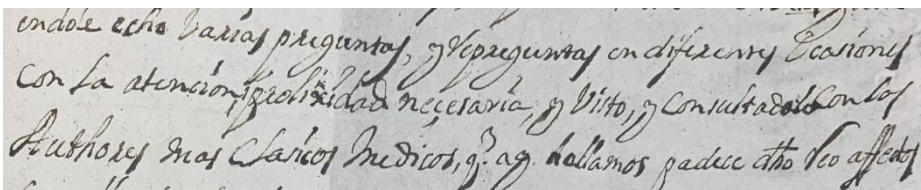 endole echo varias preguntas, y Repreguntas en diferentes Ocasiones
Con la atencion, y prolixidad neçesaria, y Visto, y Consultado Con los
Authores mas Clasicos Medicos, q.e hallamos padece dho Reo affectos